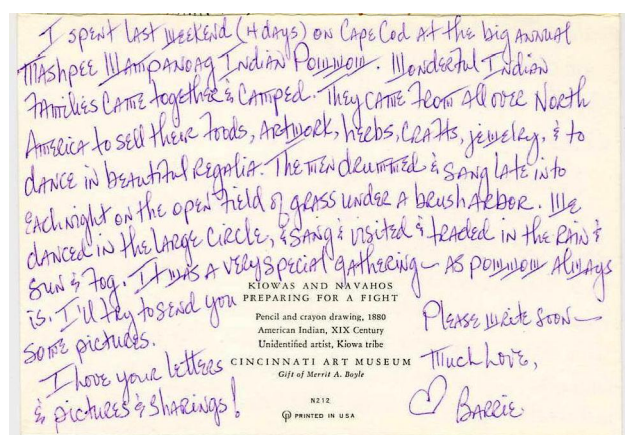 I spent last weekend (4 days) on Cape Cod at the big annual
Mashpee Wampanoag Indian Powwow. Wonderful Indian
families came together & camped. They came from all over North
America to sell their foods, artwork, herbs, crafts, jewelry, & to
dance in beautiful regalia. The men drummed & sang late into
each night on the open field of grass under a brush arbor. We
danced in the large circle, & sang & visited & traded in the rain &
sun & fog. It was a very special gathering – as powwow always
is. I'll try to send you
some pictures.
I love your letters
& pictures & sharings!
KIOWAS AND NAVAHOS
PREPARING FOR A FIGHT
Pencil and crayon drawing, 1880
American Indian, XIX Century
Unidentified artist, Kiowa tribe
CINCINNATI ART MUSEUM
Gift of Merrit A. Boyle
N212
PRINTED IN USA
Please write soon –
Much love,
♡ Barrie